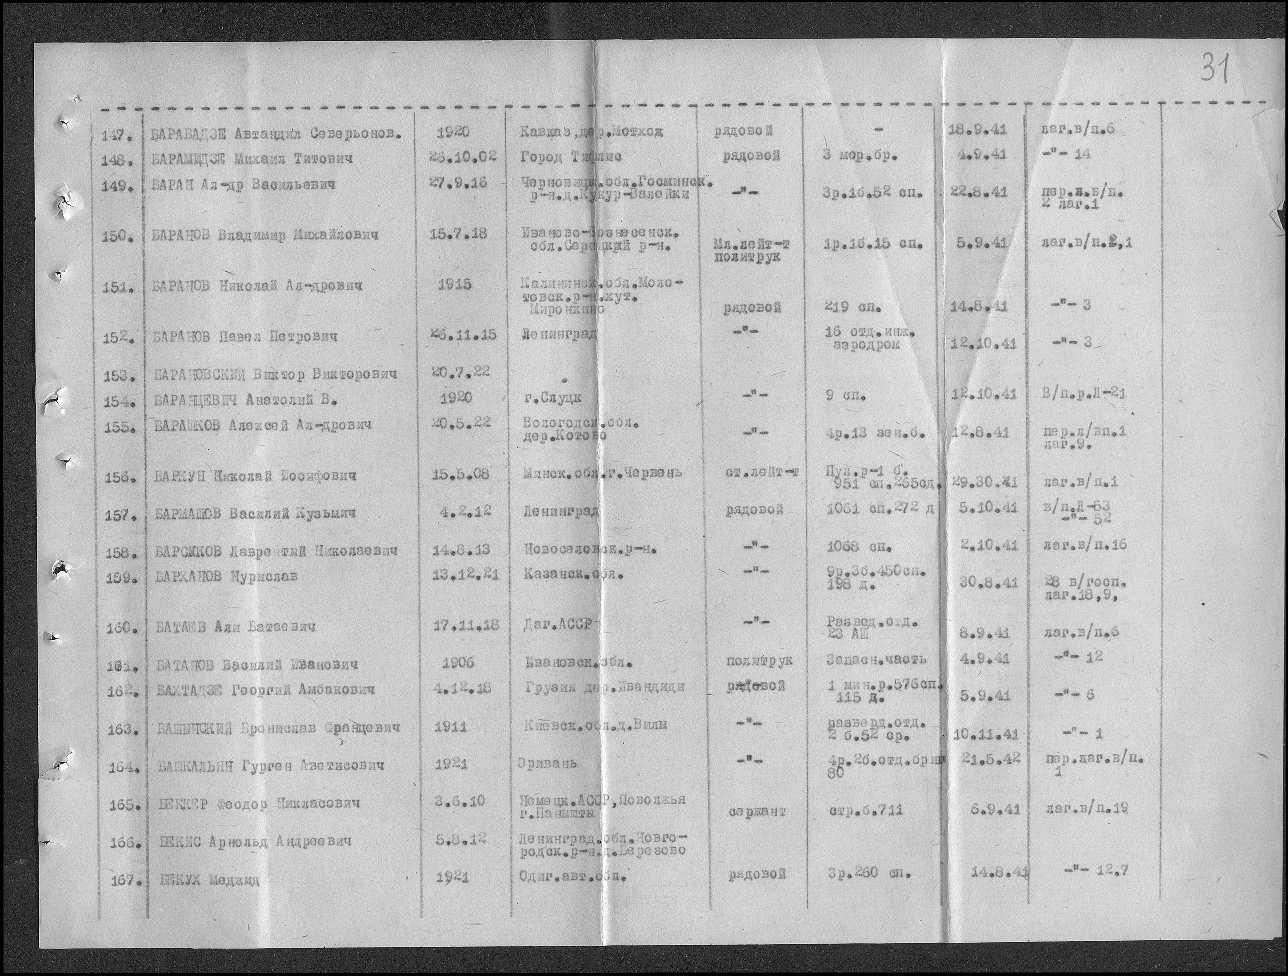 31
147. БАРАБАДЗЕ Автандил Северьонов. 1920 Кавказ,дер.Мотход рядовой - 18.9.41 лаг.в/п.6
148. БАРАМИДЗЕ Михаил Титович 26.10.02 Город Тифлис рядовой 3 мор.бр. 4.9.41 -"- 14
149. БАРАН Ал-др Васильевич 27.9.16 Черновицк.обл.Госминск. -"- 3р.1б.52 сп. 22.8.41 пер.л.в/п.
р-н.д.Кукур-Валейки 2 лаг.1
150. БАРАНОВ Владимир Михайлович 15.7.18 Иваново-Вознесенск. Мл.лейт-т 1р.1б.15 сп. 5.9.41 лаг.в/п.2,1
обл.Середцкий р-н. политрук
151. БАРАНОВ Николай Ал-дрович 1915 Калининск.обл.Моло-
товск.р-н.хут.
Миронкино рядовой 219 сп. 14.8.41 -"- 3
152. БАРАНОВ Павел Петрович 26.11.15 Ленинград -"- 15 отд.инж.
аэродром 12.10.41 -"- 3
153. БАРАНОВСКИЙ Виктор Викторович 20.7.22
154. БАРАНЦЕВИЧ Анатолий В. 1920 г.Слуцк -"- 9 сп. 12.10.41 В/п.р.Л-21
155. БАРАШКОВ Алексей Ал-дрович 20.5.22 Вологодск.обл. -"- 4р.13 зен.б. 12.8.41 пер.л/вп.1
дер.Котово лаг.9.
156. БАРКУН Николай Иосифович 15.5.08 Минск.обл.г.Червень ст.лейт-т Пул.р-1 б.
951 сп.265сд. 29.30.41 лаг.в/п.1
157. БАРМАШОВ Василий Кузьмич 4.2.12 Ленинград рядовой 1061 сп.272 д 5.10.41 в/п.Л-53
-"- 52
158. БАРСУКОВ Лаврентий Николаевич 14.8.13 Новоселовск.р-н. -"- 1068 сп. 2.10.41 лаг.в/п.16
159. БАРХАНОВ Нурислав 13.12.21 Казанск.обл. -"- 9р.3б.450сп.
198 д. 30.8.41 28 в/госп.
лаг.18,9,
160. БАТАЕВ Али Батаевич 17.11.18 Даг.АССР -"- Развед.отд.
23 АШ 8.9.41 лаг.в/п.6
161. БАТАНОВ Василий Иванович 1906 Ивановск.обл. политрук Запасн.часть 4.9.41 -"- 12
162. БАХТАДЗЕ Георгий Амбакович 4.12.18 Грузия дер.Квандиди рядовой 1 мин.р.576сп.
115 д. 5.9.41 -"- 6
163. БАШИНСКИЙ Бронислав Францевич 1911 Киевск.обл.д.Вилы -"- разверд.отд.
2 б.52 ср. 10.11.41 -"- 1
164. БАШКАЛЬЯН Гурген Аветисович 1921 Эривань -"- 4р.2б.отд.бриг 21.5.42 пер.лаг.в/п.
80 1
165. БЕККЕР Феодор Никласович 3.6.10 Немецк.АССР,Поволжья
г.Панышты сержант стр.б.711 6.9.41 лаг.в/п.19
166. БЕКИС Арнольд Андреевич 5.8.12 Ленинград.обл.Новго-
родск.р-н.д.Березово
167. БЕКУХ Меджид 1921 Один.авт.обл. рядовой 3р.260 сп. 14.8.41 -"- 12.7